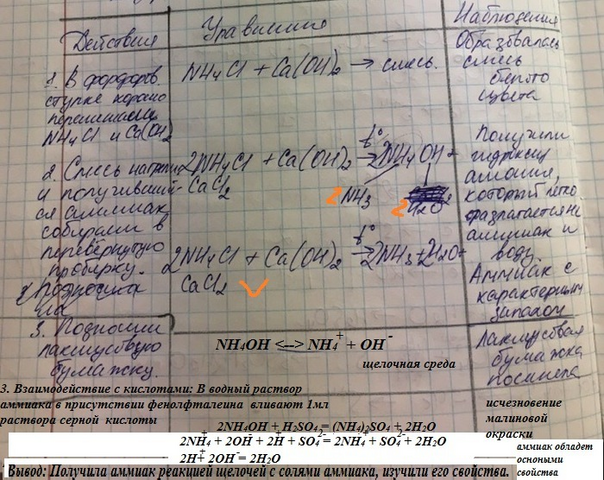 Действия
Уравнения
Наблюдения
1. В фарфоров
ступке хорошо
перемешали
NH4Cl и Ca(OH)2
NH4Cl + Ca(OH)2 → смесь.
Образовалась
смесь
белого
цвета
2. Смесь нагрели
и получивший-
ся аммиак
собираем в
перевёрнутую
пробирку.
2NH4Cl + Ca(OH)2 t° → 2NH4OH +
CaCl2
2NH3
2H2O
2NH4Cl + Ca(OH)2 t° → 2NH3 + 2H2O +
CaCl2
Получили
гидроксид
аммония,
который легко
разлагается на
аммиак и
воду
Аммиак с
характерным
запахом
3. Подносим
лакмусовую
бумажку.
NH4OH <--> NH4+ + OH-
щелочная среда
Лакмусовая
бумажка
посинела
3. Взаимодействие с кислотами: В водный раствор
аммиака в присутствии фенолфталеина вливают 1мл
раствора серной кислоты
2NH4OH + H2SO4 = (NH4)2SO4 + 2H2O
2NH4+ + 2OH- + 2H+ + SO4 2- = 2NH4+ + SO4 2- + 2H2O
2H+ + 2OH- = 2H2O
исчезновение
малиновой
окраски
аммиак обладет
осноными
свойства
Вывод: Получила аммиак реакцией щелочей с солями аммиака, изучили его свойства.